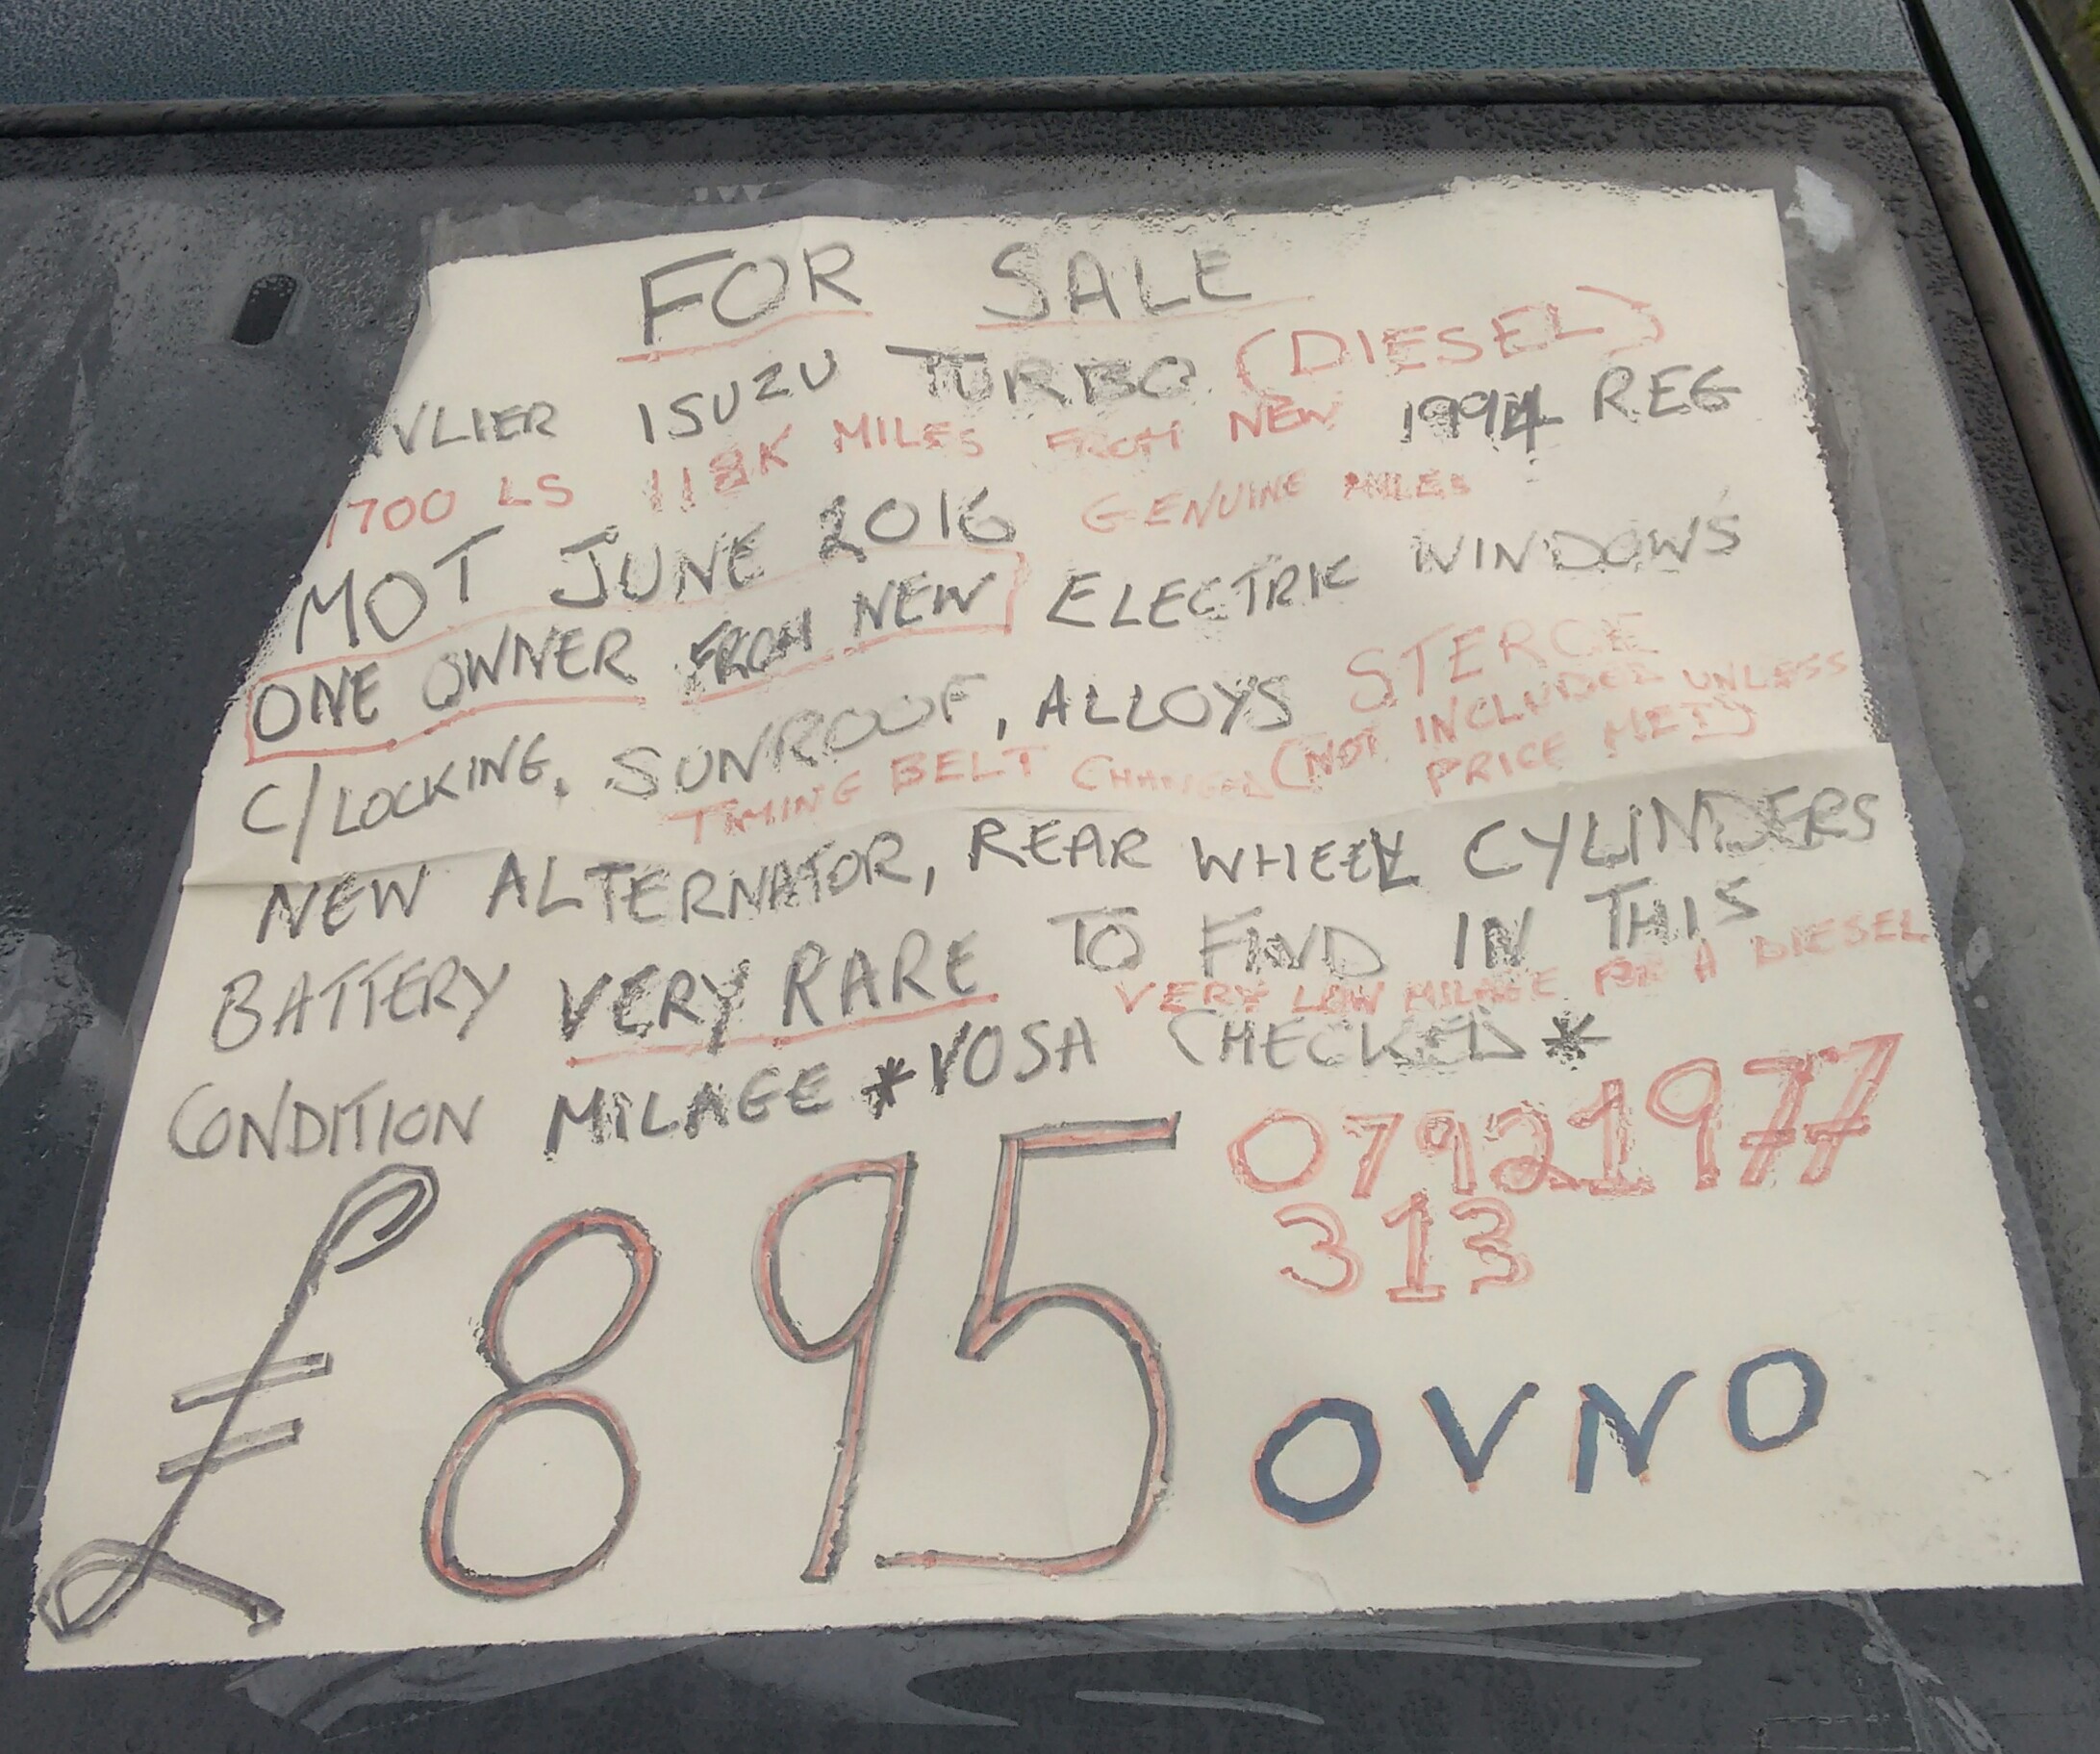 FOR SALE
VLIER ISUZU TURBO (DIESEL)
1700 LS 118K MILES FROM NEW 1994 REG
MOT JUNE 2016 GENUINE MILES
ONE OWNER FROM NEW ELECTRIC WINDOWS
C/LOCKING, SUNROOF, ALLOYS STERCE
TIMING BELT CHANGED (NOT INCLUDED UNLESS
PRICE MET)
NEW ALTERNATOR, REAR WHEEL CYLINDERS
BATTERY VERY RARE TO FIND IN THIS
VERY LOW MILAGE FOR A DIESEL
CONDITION MILAGE *VOSA CHECKED*
07921977
313
£895 OVNO